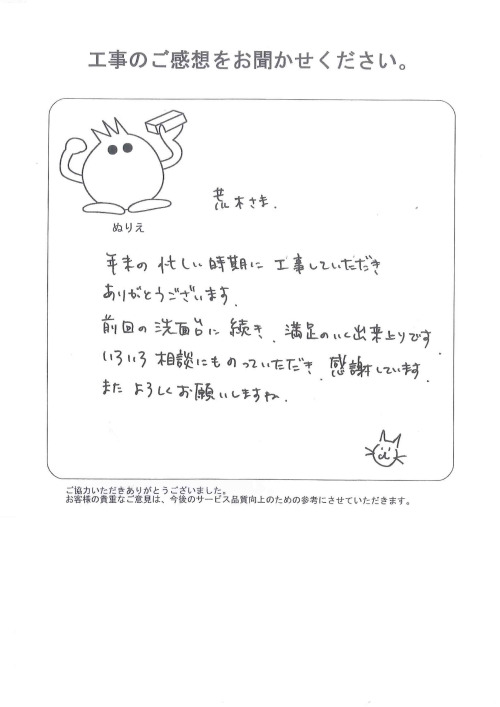 工事のご感想をお聞かせください。
荒木さま.
ぬりえ
年末の 忙しい 時期に 工事していただき
ありがとうございます.
前回の 洗面台に 続き、満足のいく出来上りです.
いろいろ 相談にものっていただき、感謝しています.
また よろしくお願いしますね.
ご協力いただきありがとうございました。
お客様の貴重なご意見は、今後のサービス品質向上のための参考にさせていただきます。